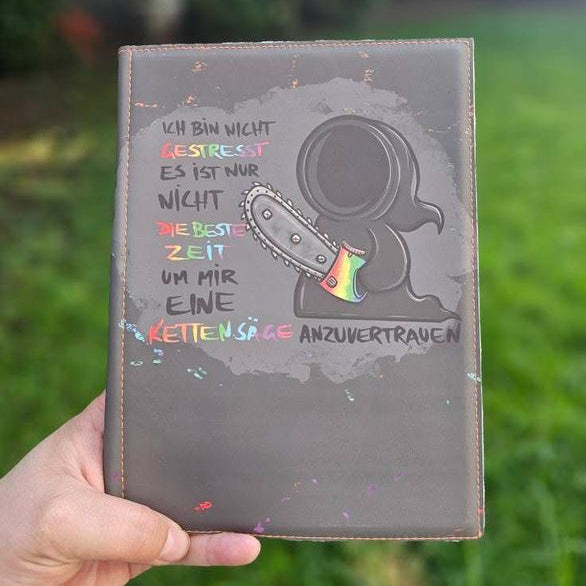 ICH BIN NICHT
GESTRESST
ES IST NUR
NICHT
DIE BESTE
ZEIT
UM MIR
EINE
KETTENSÄGE ANZUVERTRAUEN